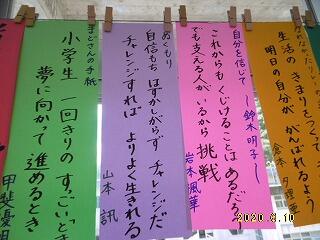 生活の きまりをつくって
明日の自分が がんばれるよう
自分を信じて ～鈴木明子～
これからも くじけることは あるだろう
でも支える人が いるから 挑戦
岩木風華
ぬくもり
自信もち はずかしがらず チャレンジだ
チャレンジすれば よりよく生きれる
山本 訊
まどさんの手紙
小学生 一回きりの すっごいとき
夢に向かって 進めるとき
甲斐優